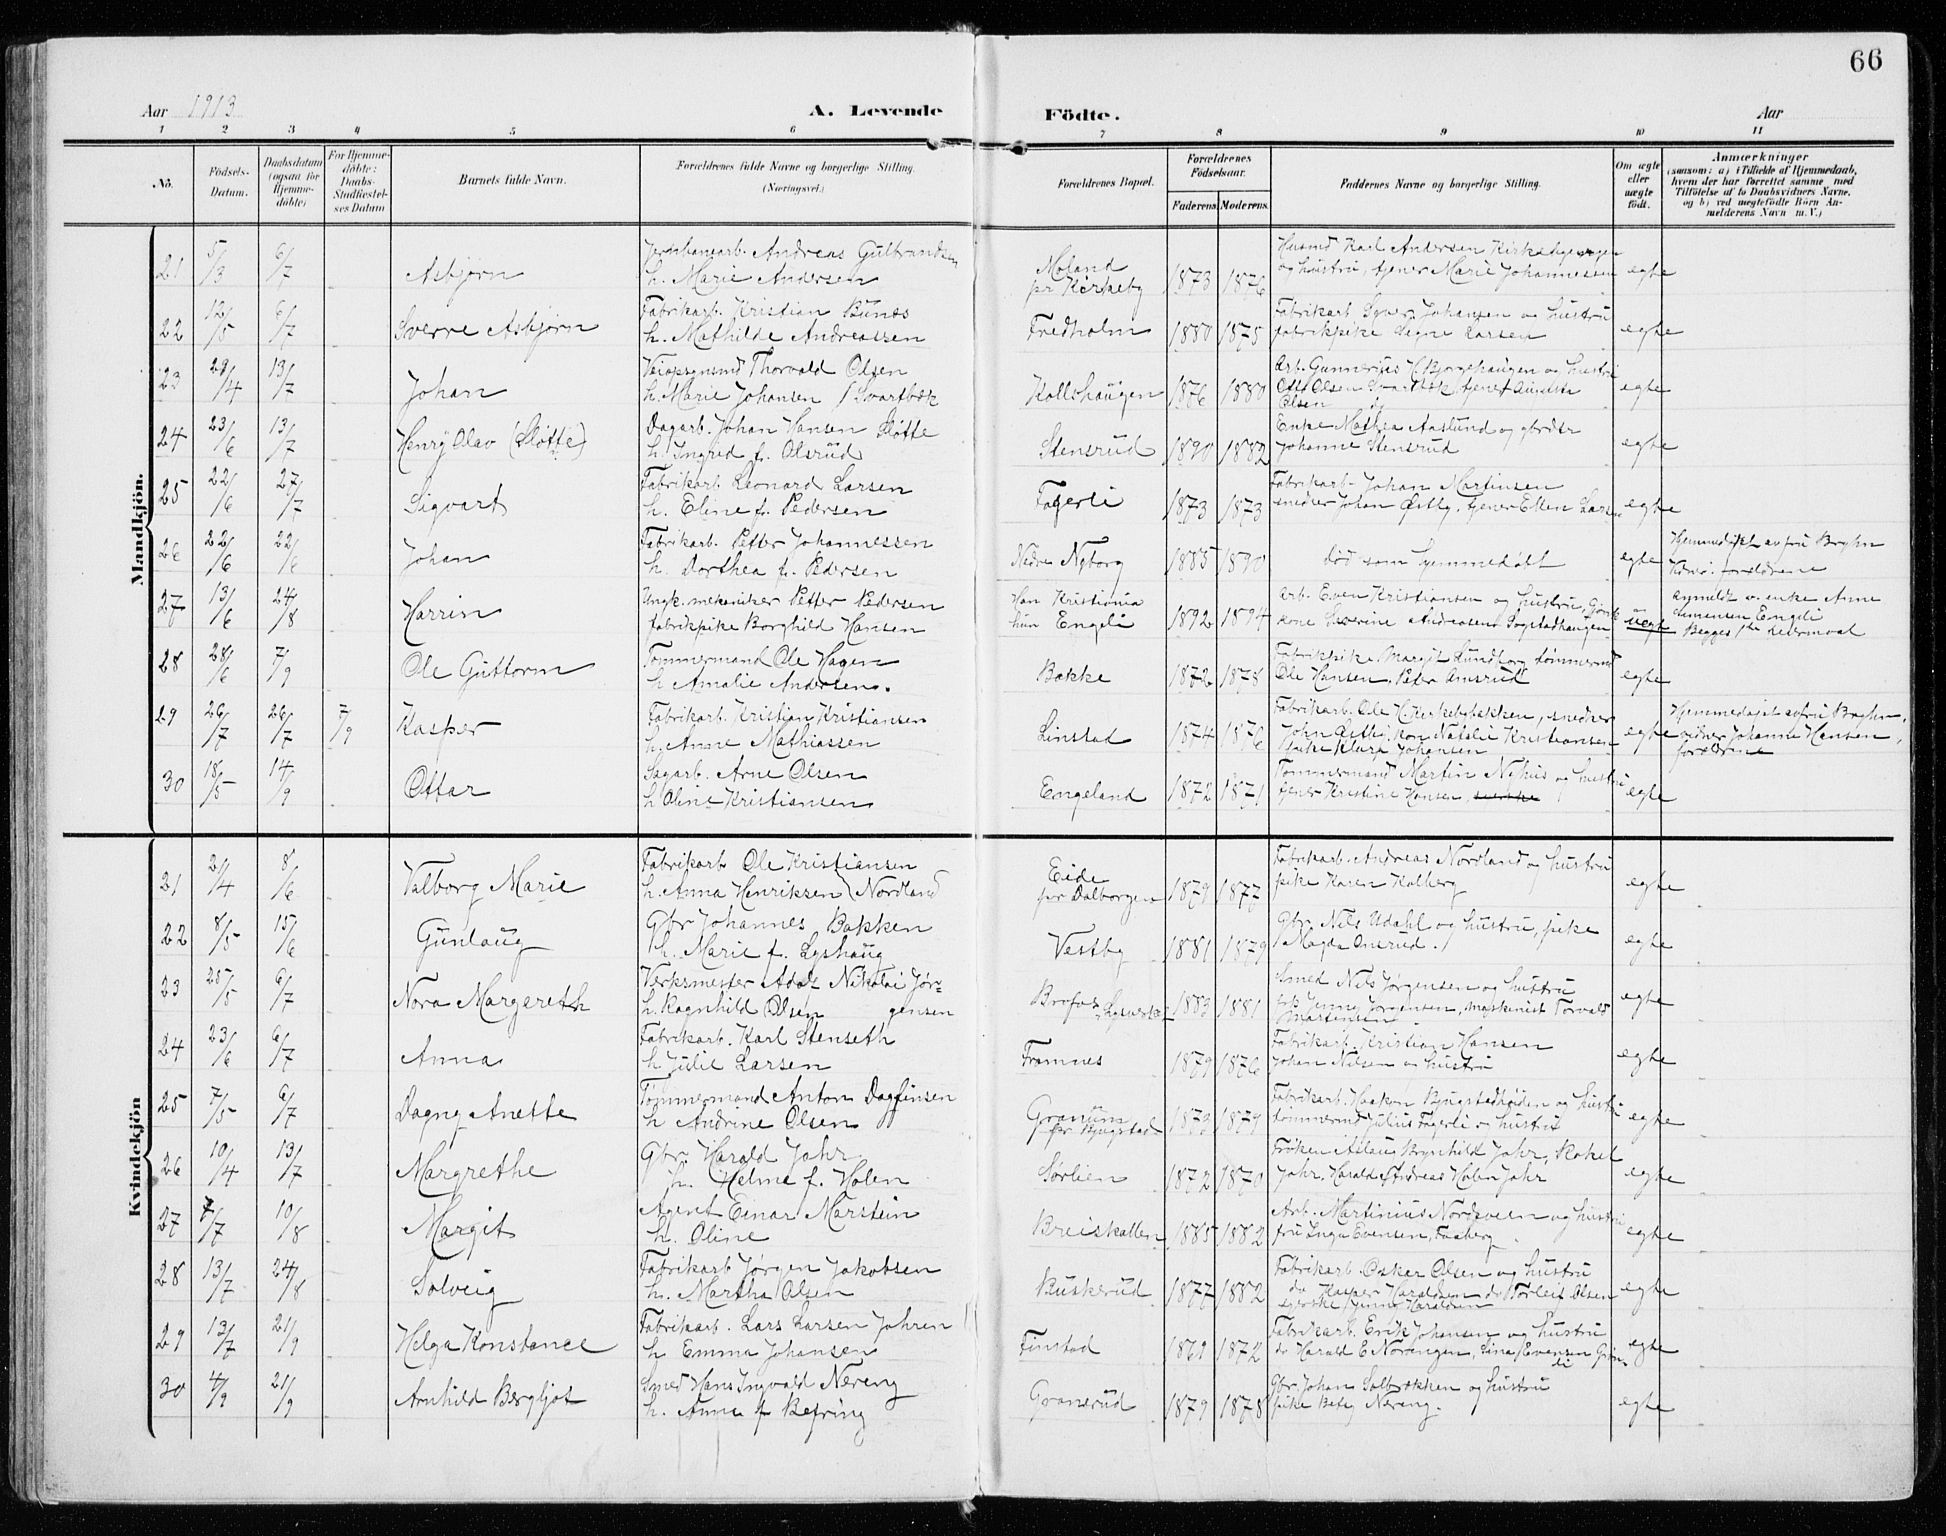 66
Aar 1913 A. Levende Födte. Aar
1 2 3 4 5 6 7 8 9 10 11
No.
Födsels-
Datum.
Daabsdatum
(ogsaa for
Hjemme-
döbte)
For Hjemme-
döbte:
Daabs-
Stadfæstel-
ses Datum
Barnets fulde Navn.
Forældrenes fulde Navne og borgerlige Stilling.
(Næringsvei.)
Forældrenes Bopæl.
Forældrenes
Födselsaar.
Faderens Moderens.
Faddernes Navne og borgerlige Stilling.
Om ægte
eller
uægte
födt.
Anmærkninger
(saasom: a) i Tilfælde af Hjemmedaab,
hvem der har forrettet samme med
Tilföielse af to Daabsvidners Navne,
og b) ved uægtefödte Börn An-
melderens Navn m. V.)
Mandkjön.
21 5/3 6/7 Asbjørn
Jernbanearb. Andreas Gulbrandsen
h. Marie Andersen
Moland
pr Kirkeby
1873 1876
og hustru, tjener Marie Johannessen
egte
22 12/5 6/7 Sverre Asbjørn
Fabrikarb. Kristian Bunæs
h. Mathilde Andreassen
Fredholm 1880 1875
Fabrikarb Syver Johansen og hustru
fabrikpike Signe Larsen
egte
23 29/4 13/7 Johan
Veiopsynsmd Thorvald Olsen
h. Marie Johansen / Svartbæk
Kollshaugen 1876 1880
Olsen
egte
24 23/6 13/7 Henry Olav (Sløtte)
Dagarb. Johan Hansen Sløtte
h. Ingred f. Olsrud
Stensrud 1890 1882
Enke Mathea Aaslund og gbrdtr
Johanne Stensrud
egte
25 22/6 27/7 Sigvart
Fabrikarb Leonard Larsen
h. Eline f. Pedersen
Fagerli 1873 1873
Fabrikarb- Johan Martinsen
snedker Johan Østby, tjener Ellen Larsen
egte
26 22/6 22/6 Johan
Fabrikarb. Petter Johannessen
h. Dorthea f. Pedersen
Nedre Nyborg 1885 1890
død som hjemmedøbt
egte
Hjemmedøpt av fru Bryhn
forældrene
27 13/6 24/8 Harrin
Ungk. mekaniker Petter Pedersen
fabrikpike Borghild Hansen
Han Kristiania
hun Engeli
1892 1894
Arb. Even Kristiansen og hustru,
kone Severine Andreasen
uegte
anmeldt v. enke Anne
Simensen Engeli
Begges 1ste leiermaal
28 28/6 7/9 Ole Guttorm
Tømmermand Ole Hagen
h Amalie Andersen.
Bakke 1872 1878
Fabrikpike Margit Lundborg tømmermd
Ole Hansen, Peter Amsrud
egte
29 26/7 26/7 7/9 Kasper
Fabrikarb. Kristian Kristiansen
h. Anne Mathiassen
Linstad 1874 1876
Fabrikarb. Ole H Kirkebybakken, snedker
kon Natalie Kristiansen
pike Klara Johansen
egte
Hjemmedøpt av fru Bryhn,
vidner Johanne Hansen,
forældrene
30 18/5 14/9 Ottar
Sagarb. Arne Olsen
h Oline Kristiansen
Engeland 1872 1871
Tømmermand Martin Nyhus og hustru
tjener Kristine Hansen
egte
Kvindekjön
21 21/4 8/6 Valborg Marie
Fabrikarb Ole Kristiansen
h. Anna Henriksen / Nordland
Eide
pr Dalborgen
1879 1877
Fabrikarb. Andreas Nordland og hustru
pike Karen Kolberg
egte
22 8/5 15/6 Gunlaug
Gbr Johannes Bakken
h. Marie f. Lyshaug
Vestby 1881 1879
Gbr. Nils Udahl og hustru, pike
Magda Onsrud.
egte
23 25/5 6/7 Nora Margereth
Verksmester Adolf Nikolai Jør-
h. Ragnhild Olsen gensen
Brofos 1883 1881
Smed Nils Jørgensen og hustru
Jenny Jørgensen, maskinist Torvald
Martensen
egte
24 23/6 6/7 Anna
Fabrikarb. Karl Stenseth
h Julie Larsen
Framnes 1879 1876
Fabrikarb. Kristian Hansen
Johan Nilsen og hustru
egte
25 7/5 6/7 Dagny Anette
Tømmermand Anton Dagfinsen
h Andrine Olsen
Granum
pr Bjugstad
1879
Fabrikarb. Haakon Bjugstadhøiden og hustru
tømmermd Julius Fagerli og hustru
egte
26 10/4 13/7 Margrethe
Gbr. Harald Jahr
h. Helma f. Holen
Sørlien 1872 1870
Frøken Aslaug Brynhild Jahr, Rakel
Jahr, Harald Andreas Holen Jahr
egte
27 7/7 10/8 Margit
Agent Einar Marstein
h. Oline
Breiskallen 1885 1882
Arb. Martinius Nordsveen og hustru
fru Inga Evensen, Faaberg
egte
28 13/7 24/8 Solveig
Fabrikarb Jørgen Jakobsen
h. Martha Olsen
Buskerud 1877 1882
Fabrikarb Oskar Olsen og hustru
do Kasper Haraldsen do Torleif Olsen
egte
29 13/7 21/9 Helga Konstance
Fabrikarb. Lars Larsen Jahren
h Emma Johansen
Finstad 1869 1872
Fabrikarb. Erik Johansen og hustru
do Harald E Norengen, Lina Evensen
egte
30 4/9 21/9 Arnhild Bergljot
Smed Hans Ingvald Nereng
h. Anna f Befring
Granerud 1879 1878
Gbr. Johan Solbrækken og hustru
pike Betsy Nereng.
egte